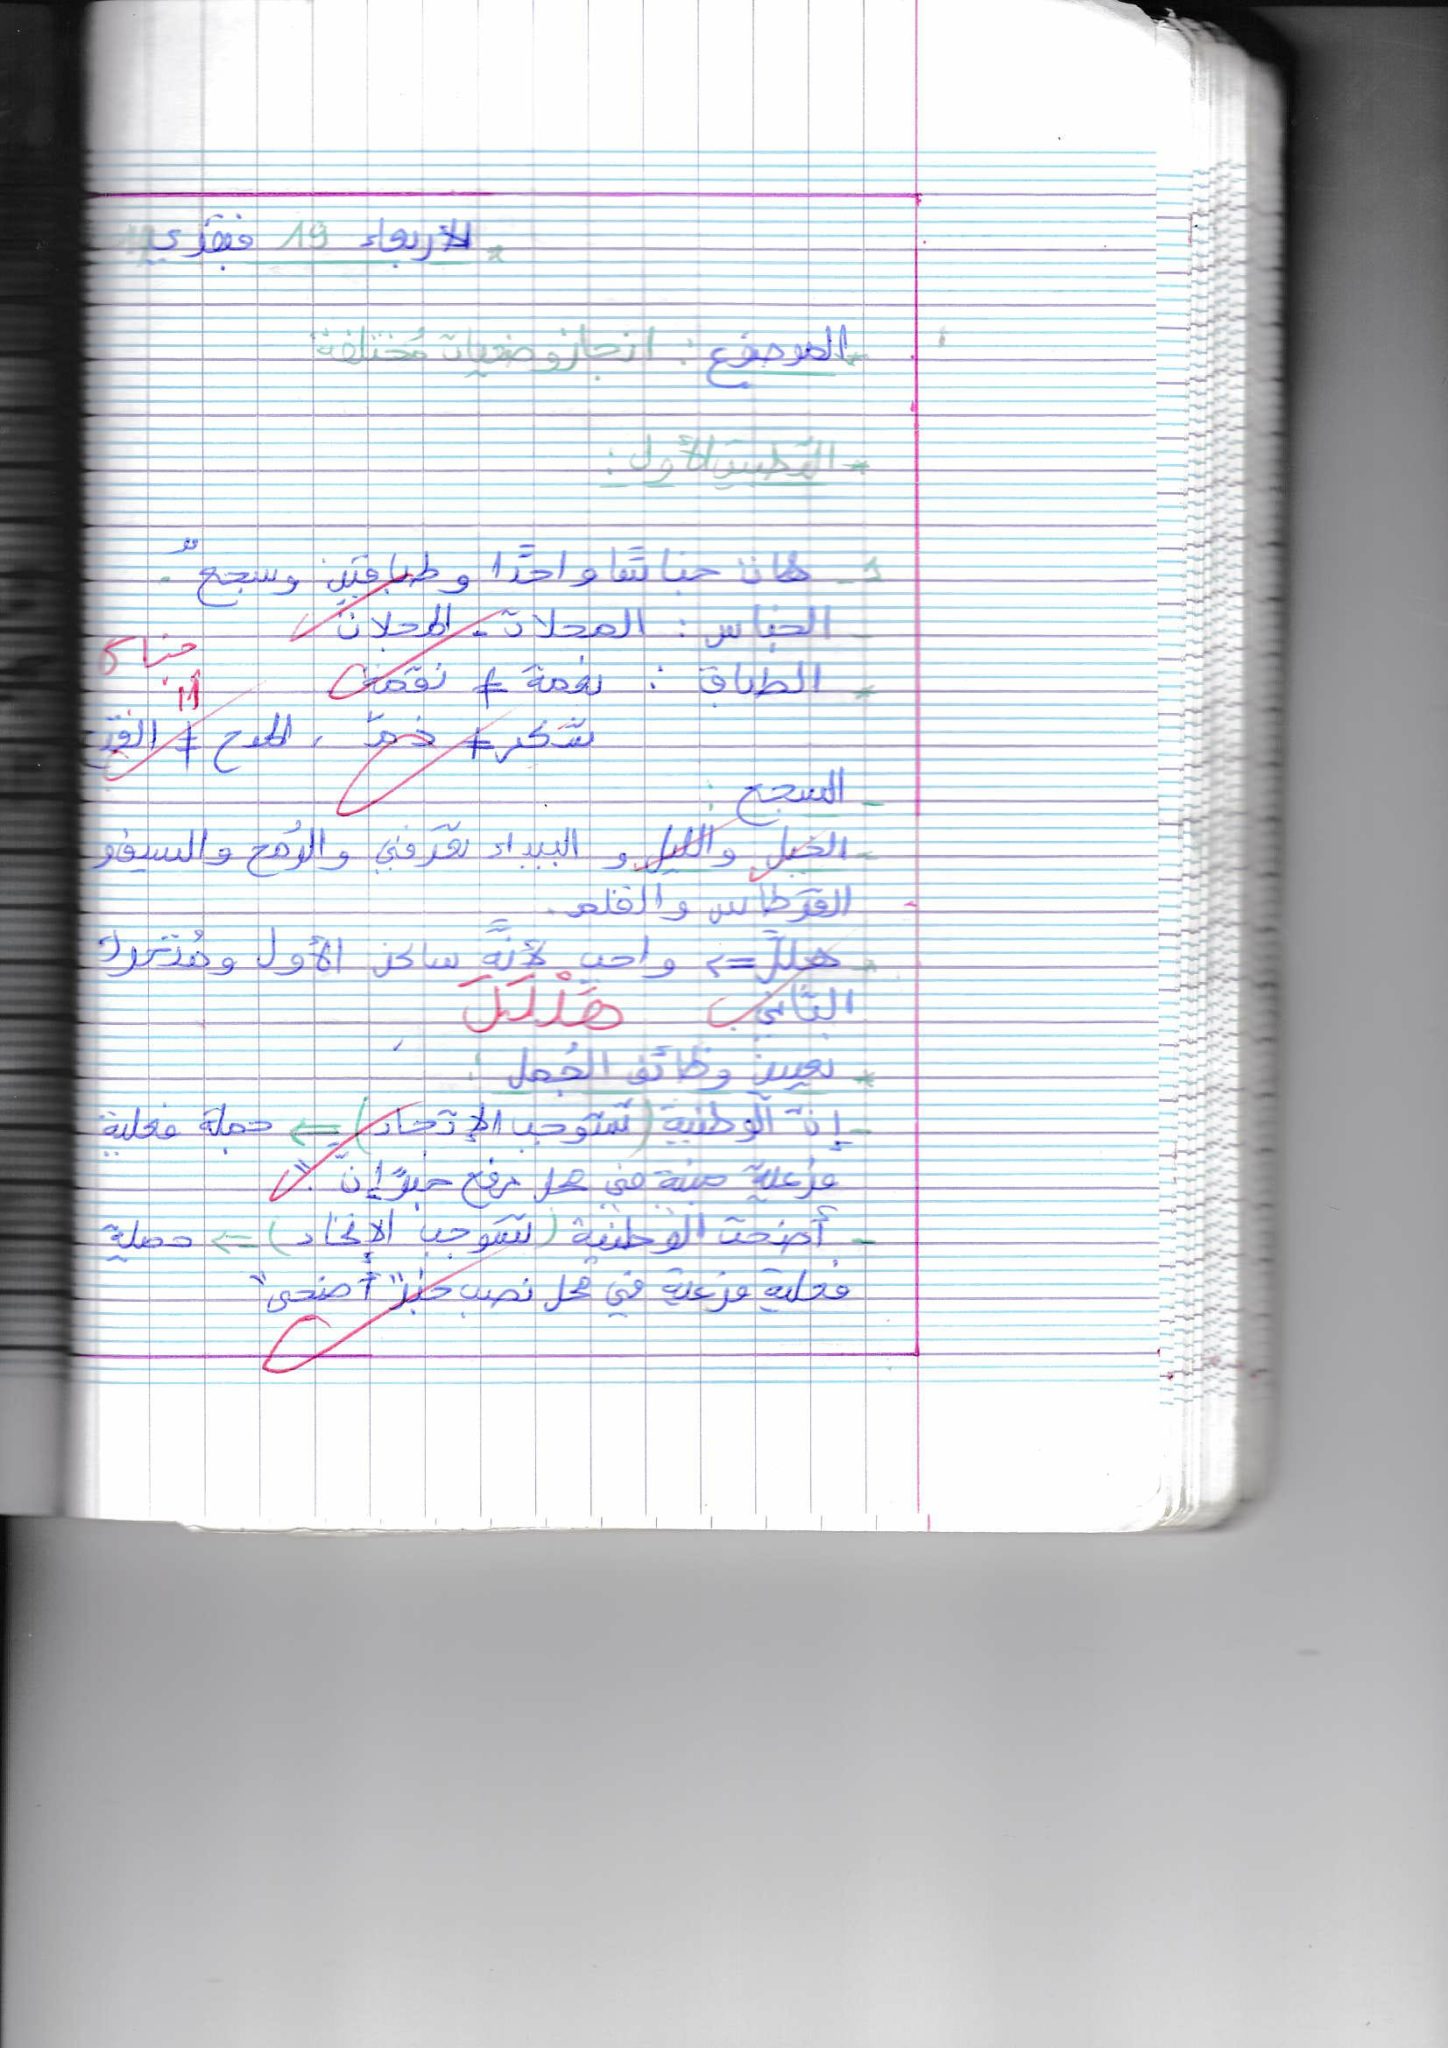 * الأربعاء 19 فيفري
* الموضوع : انجاز وضعيات مُختلفة
* التطبيق الأول :
1 - هات جناسًا واحدًا و طباقين وسجع .
- الجناس : المحلات - المجلات
جناس
* الطباق : نعمة ≠ نقمة
شكر ≠ ذمّ ، المدح ≠
- السجع :
- الخيل والليل و البيداء تعرفني والرمح والسيف و
القرطاس والقلم .
واجب لأنَّه ساكن الأول ومُتحرك
الثاني
* تعيين وظائف الجُمل :
- إنّ الوطنية (تستوجب الإتحاد) ⇐ جملة فعلية
فرعية مبنية في محل رفع خبر إنّ "
- أضحت الوطنية (تستوجب الإتحاد) ⇐ جملة
فعلية فرعية في محل نصب خبر "أضحى"